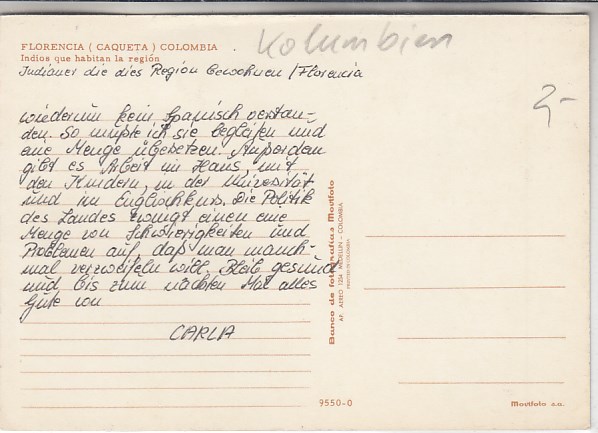 Kolumbien
FLORENCIA ( CAQUETA ) COLOMBIA
Indios que habitan la región
Indianer die dies Region bewohnen / Florencia
2,-
wiederum kein Spanisch verstan-
den. So mußte ich sie begleiten und
eine Menge übersetzen. Außerdem
gibt es Arbeit im Haus, mit
den Kindern, in der Universität
und im Englischkurs. Die Politik
des Landes zwingt einen eine
Menge von Schwierigkeiten und
Problemen auf, daß man manch-
mal verzweifeln will. Bleib gesund
und bis zum nächsten Mal alles
Gute von
CARLA
Banco de fotografías Mostfoto
AP. AEREO 1224 MEDELLIN - COLOMBIA
9550-0
Mostfoto s.a.